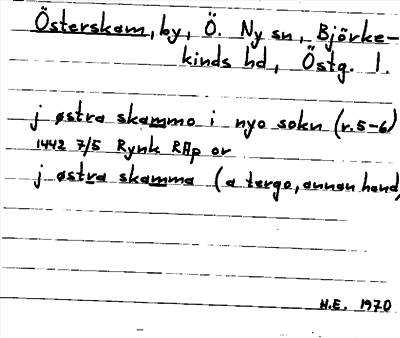 Österskam, by, Ö. Ny sn, Björke-
kinds hd, Östg. l.
j østra skammo i nyo sokn (r. 5-6)
1442 7/5 Rynk RAp or
j østra skamma (a tergo, annan hand)
H.E. 1970